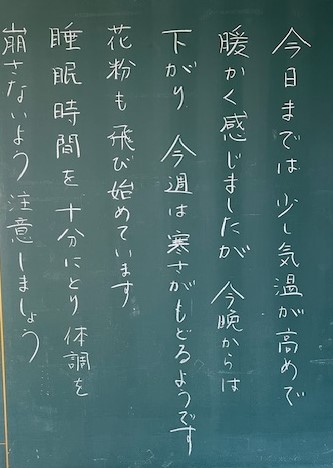 今日までは 少し気温が高めで
暖かく感じましたが 今晩からは
下がり 今週は寒さがもどるようです
花粉も飛び始めています
睡眠時間を十分にとり 体調を
崩さないよう注意しましょう